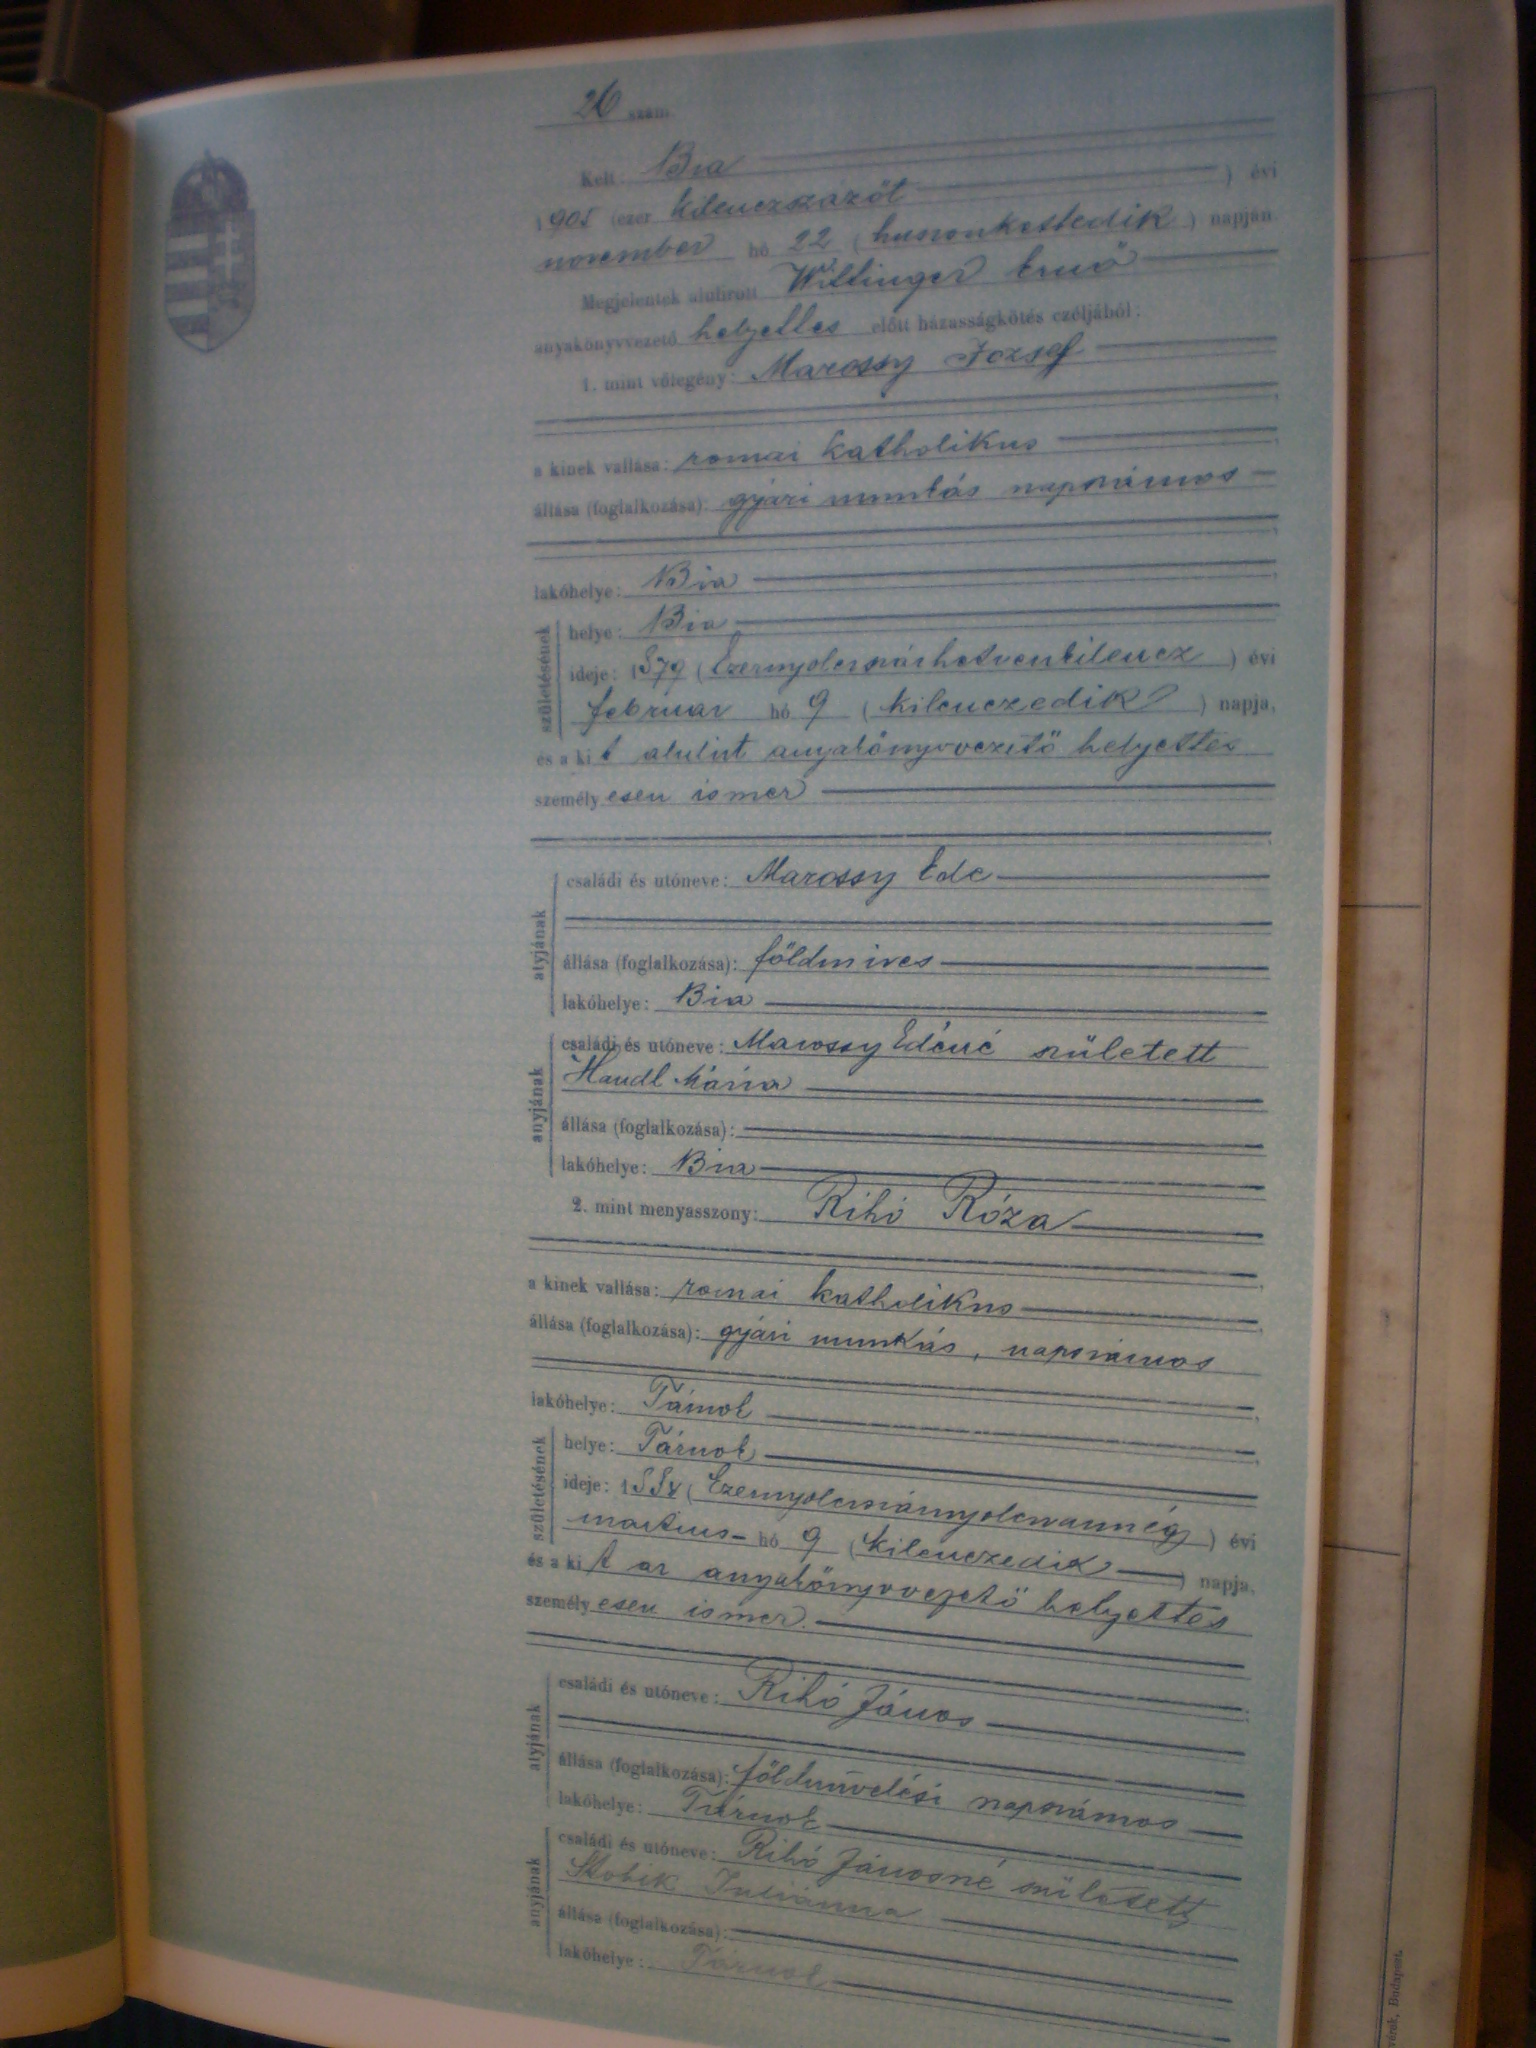 26 szám
Kelt Bia
1905 (ezer kilenczszázöt) évi
november hó 22 (huszonkettedik) napján.
Megjelentek alulirott Wittinger Ernő
anyakönyvvezető helyettes előtt házasságkötés czéljából:
1. mint vőlegény: Marossy József
a kinek vallása: romai katholikus
állása (foglalkozása): gyári munkás napszámos
lakóhelye: Bia
születésének
helye: Bia
ideje: 1879 (Ezernyolczszázhetvenkilencz) évi
februar hó 9 (kilenczedik) napja,
és a kit alulirt anyakönyvvezető helyettes
személyesen ismer
atyjának
családi és utóneve: Marossy Ede
állása (foglalkozása): földmives
lakóhelye: Bia
anyjának
családi és utóneve: Marossy Edéné született
Handl Mária
állása (foglalkozása):
lakóhelye: Bia
2. mint menyasszony: Rihó Róza
a kinek vallása: romai katholikus
állása (foglalkozása): gyári munkás, napszámos
lakóhelye: Tárnok
születésének
helye: Tárnok
ideje: 1884 (Ezernyolczszáznyolczvannégy) évi
martius hó 9 (kilenczedik) napja,
és a kit az anyakönyvvezető helyettes
személyesen ismer.
atyjának
családi és utóneve: Rihó János
állása (foglalkozása): földmüvelési napszámos
lakóhelye: Tárnok
anyjának
családi és utóneve: Rihó Jánosné született
Skobik Julianna
állása (foglalkozása):
lakóhelye: Tárnok
Budapest.